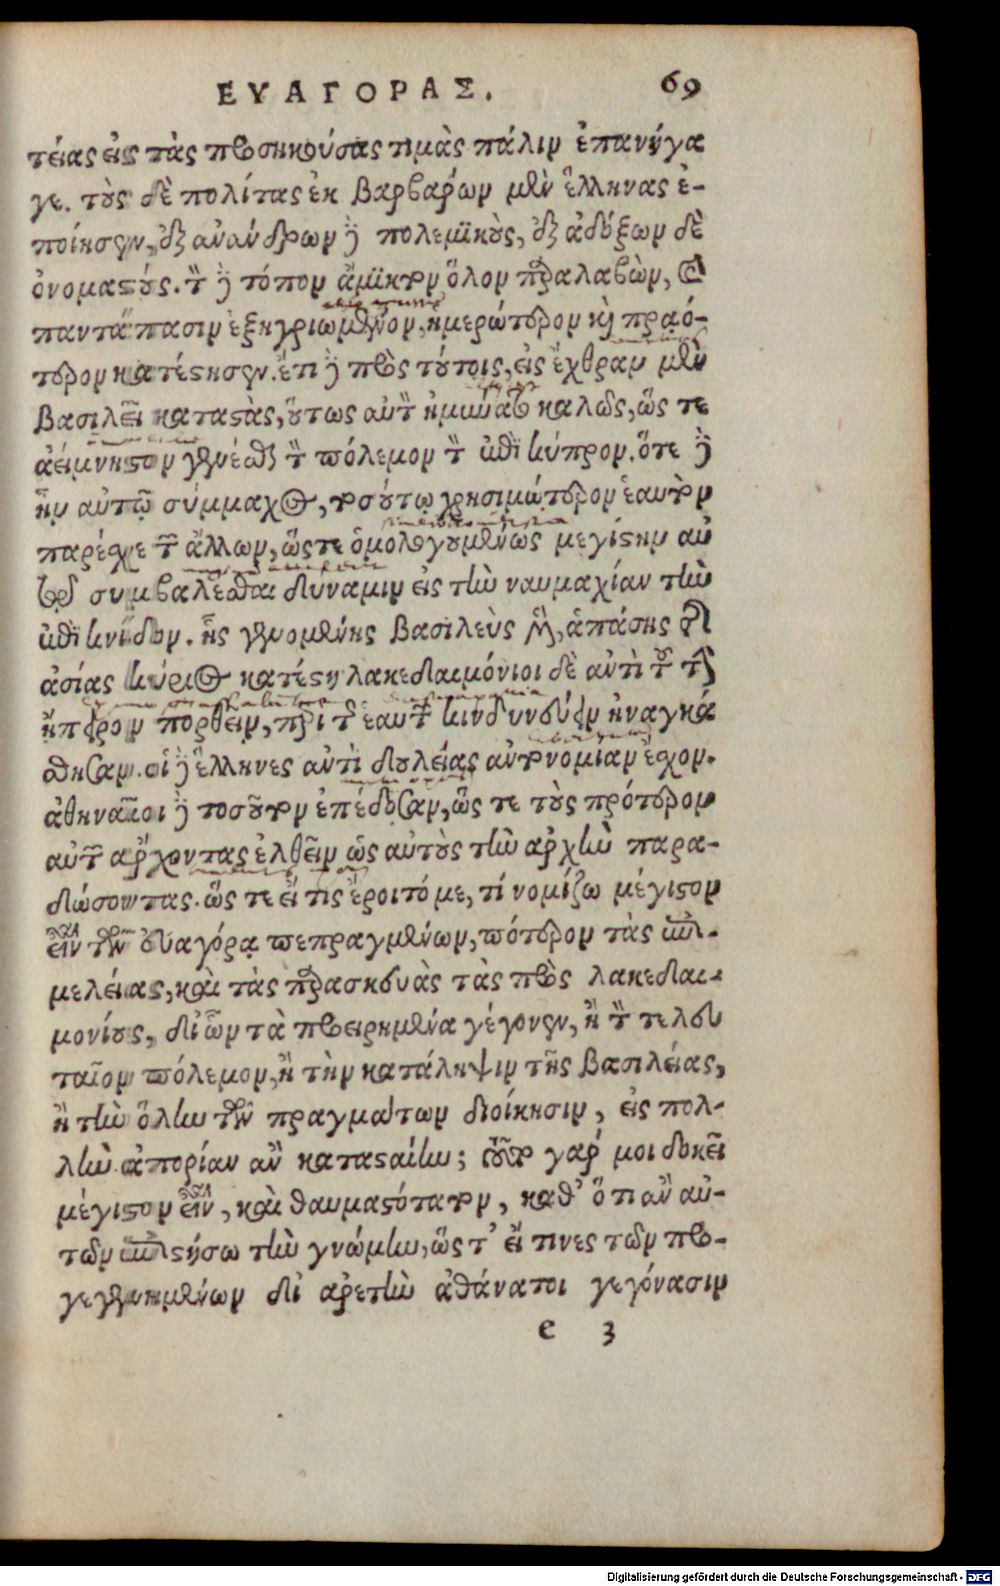 ΕΥΑΓΟΡΑΣ. 69
τείας εἰς τὰς προσηκούσας τιμὰς πάλιν ἐπανήγα
γε. τοὺς δὲ πολίτας ἐκ βαρβάρων μὲν ἕλληνας ἐ-
ποίησεν, ἐξ ἀνάνδρων δὲ πολεμικοὺς, ἐξ ἀδόξων δὲ
ὀνομαστούς. τὸν δὲ τόπον ἄμικτον ὅλον παραλαβὼν, καὶ
παντάπασιν ἐξηγριωμένον, ἡμερώτερον καὶ πραό-
τερον κατέστησεν. ἔτι δὲ πρὸς τούτοις, εἰς ἔχθραν μὲν
βασιλεῖ καταστὰς, οὕτως αὐτὸν ἠμύνατο καλῶς, ὥς τε
ἀείμνηστον γενέσθαι τὸν πόλεμον τὸν ἐπὶ κύπρον. ὅτε δὲ
ἦν αὐτῷ σύμμαχος, τοσούτῳ χρησιμώτερον ἑαυτὸν
παρέσχε τῶν ἄλλων, ὥς τε ὁμολογουμένως μεγίστην αὐ
τῷ συμβαλέσθαι δύναμιν εἰς τὴν ναυμαχίαν τὴν
ἐπὶ κνίδον. ἧς γενομένης βασιλεὺς μὲν, ἁπάσης τῆς
ἀσίας κύριος κατέστη λακεδαιμόνιοι δὲ ἀντὶ τοῦ τὴν
ἤπειρον πορθεῖν, περὶ τῆς ἑαυτῶν κινδυνεύειν ἠναγκά
σθησαν. οἱ δὲ ἕλληνες ἀντὶ δουλείας αὐτονομίαν ἔσχον.
ἀθηναῖοι δὲ τοσοῦτον ἐπέδοσαν, ὥς τε τοὺς πρότερον
αὐτῶν ἄρχοντας ἐλθεῖν ὡς αὐτοὺς τὴν ἀρχὴν παρα-
δώσοντας. ὥς τε εἴ τις ἔροιτό με, τί νομίζω μέγιστον
εἶναι τῶν εὐαγόρᾳ πεπραγμένων, πότερον τὰς ἐπι-
μελείας, καὶ τὰς παρασκευὰς τὰς πρὸς λακεδαι-
μονίους, δι’ ὧν τὰ προειρημένα γέγονεν, ἢ τὸν τελευ
ταῖον πόλεμον, ἢ τὴν κατάληψιν τῆς βασιλείας,
ἢ τὴν ὅλην τῶν πραγμάτων διοίκησιν, εἰς πολ-
λὴν ἀπορίαν ἂν κατασταίην; τοῦτο γάρ μοι δοκεῖ
μέγιστον εἶναι, καὶ θαυμαστότατον, καθ’ ὅ τι ἂν αὐ-
τῶν ἐπιστήσω τὴν γνώμην, ὥς τ’ εἴ τινες τῶν προ-
γεγενημένων δι’ ἀρετὴν ἀθάνατοι γεγόνασιν
e 3
Digitalisierung gefördert durch die Deutsche Forschungsgemeinschaft - DFG